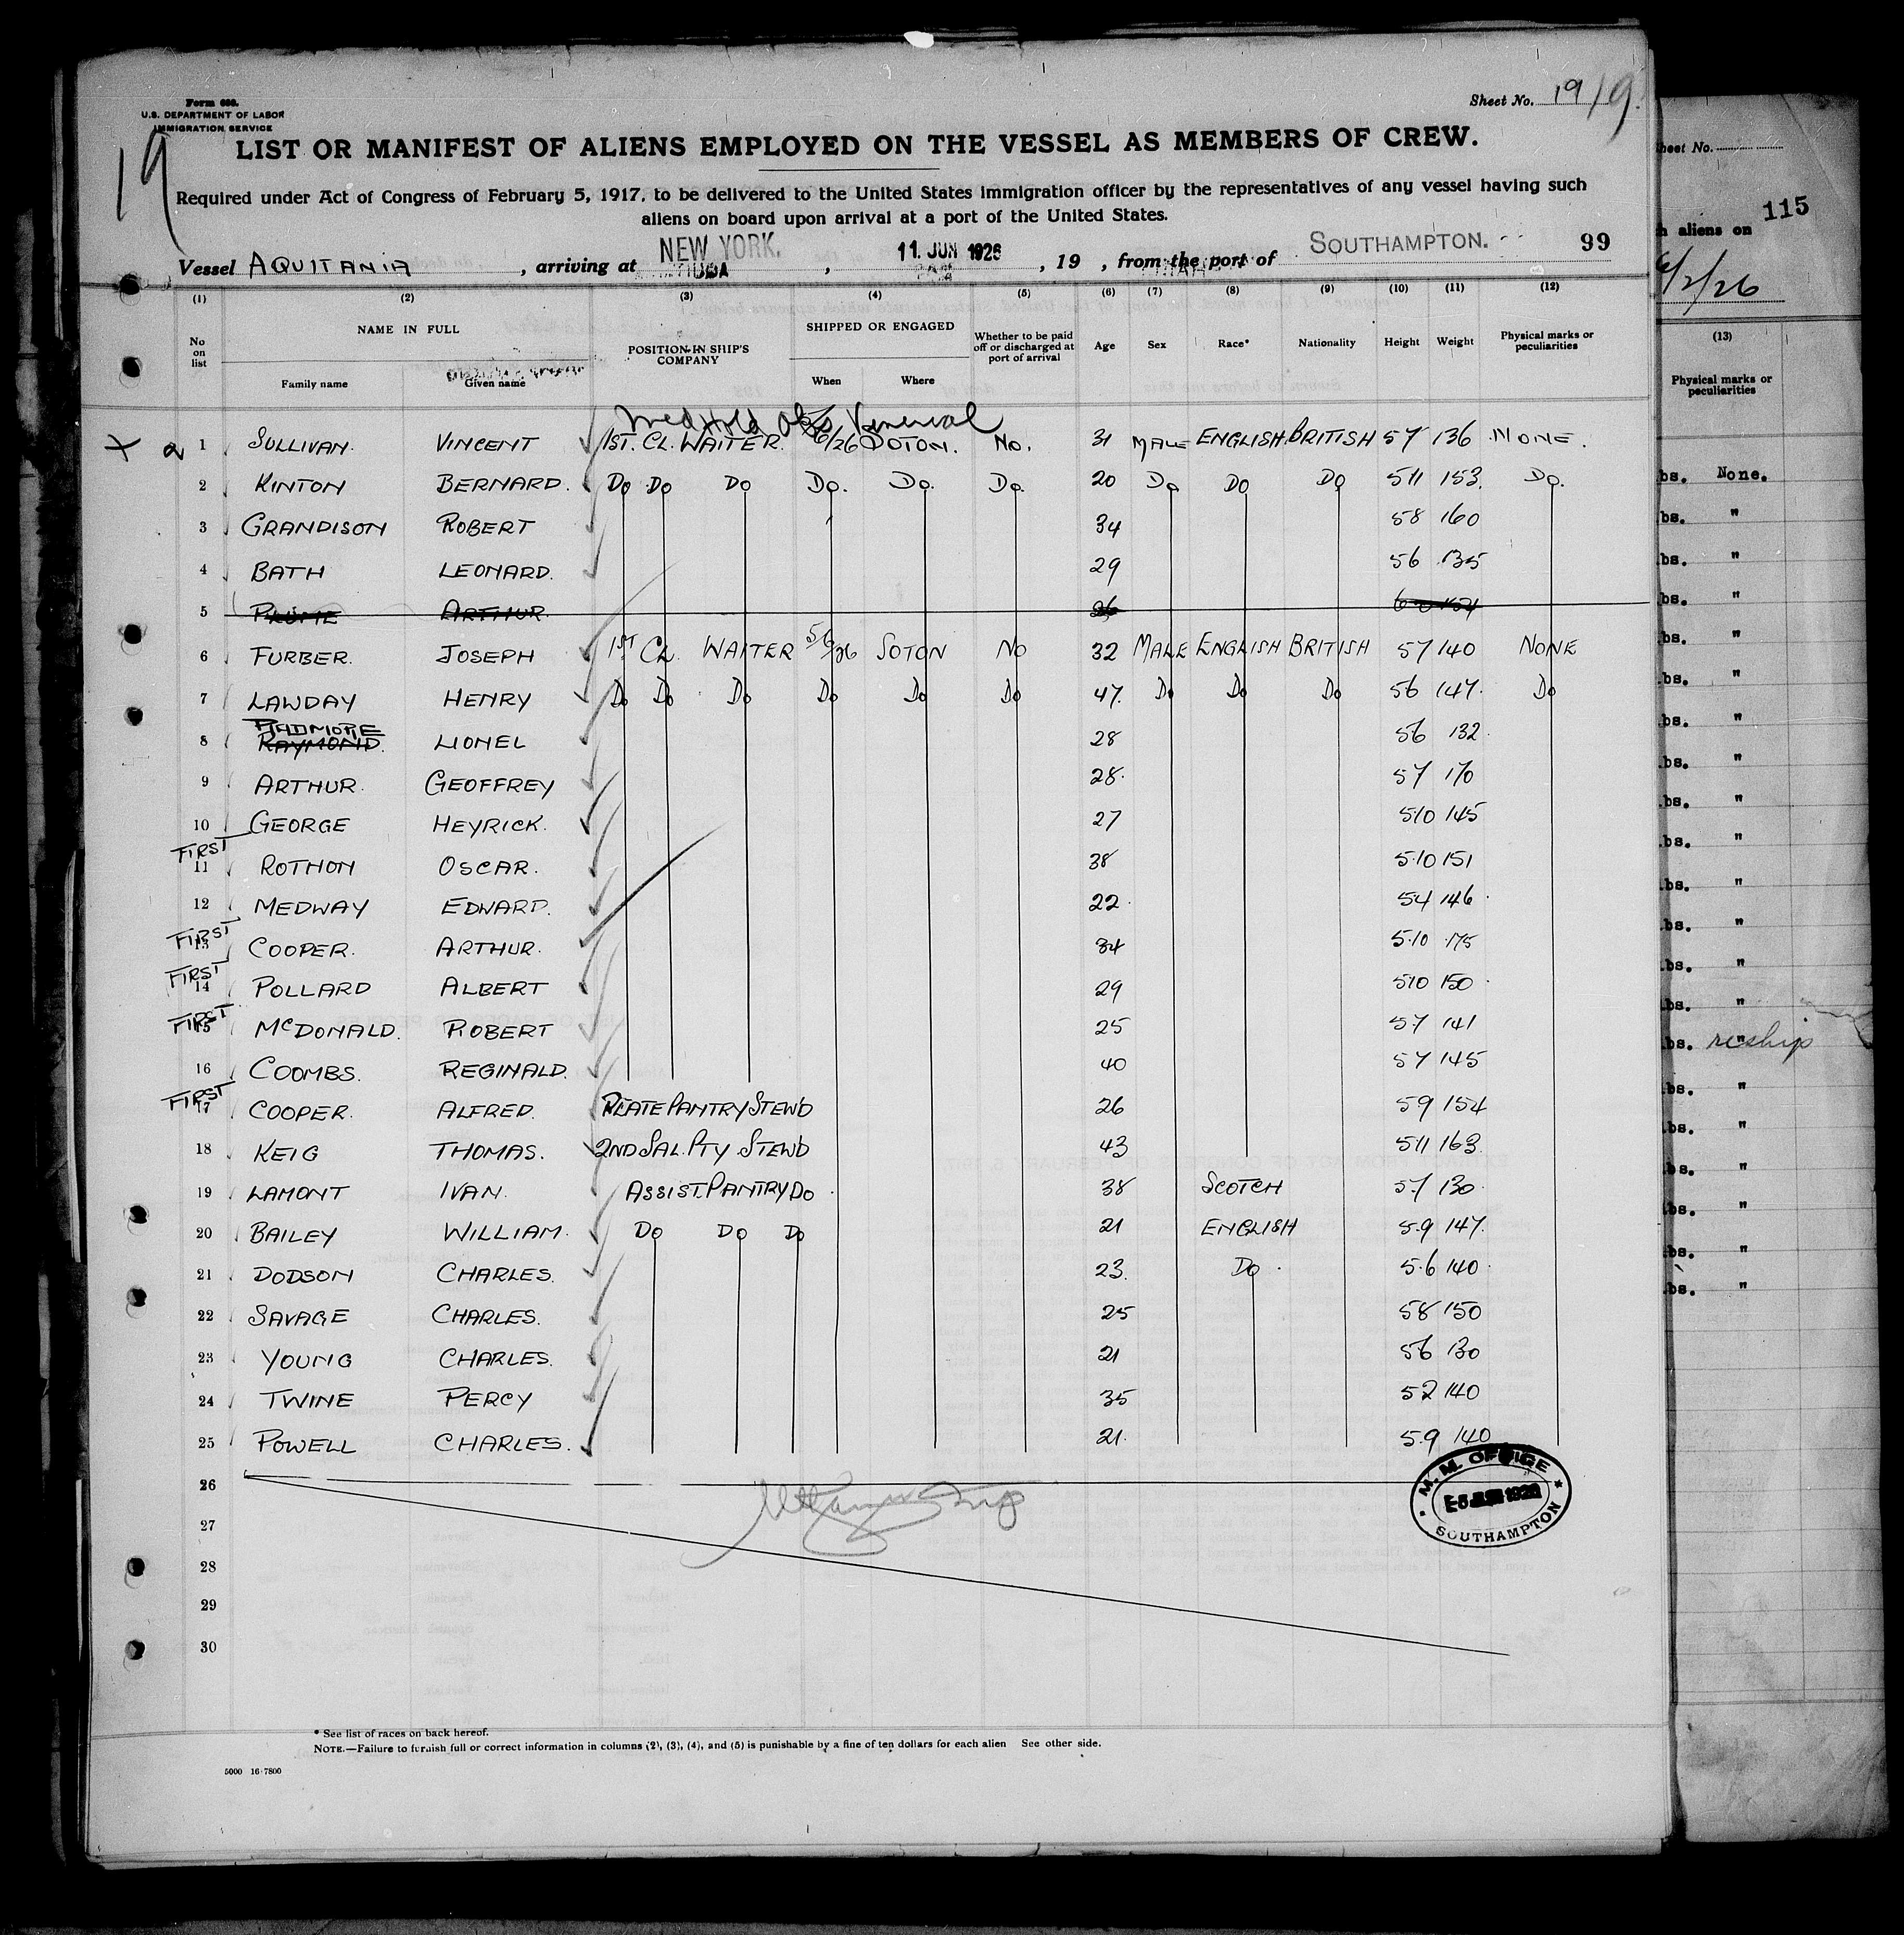 Form 680.
U.S. DEPARTMENT OF LABOR
IMMIGRATION SERVICE
Sheet No. 19 19
19
LIST OR MANIFEST OF ALIENS EMPLOYED ON THE VESSEL AS MEMBERS OF CREW.
Required under Act of Congress of February 5, 1917, to be delivered to the United States immigration officer by the representatives of any vessel having such
aliens on board upon arrival at a port of the United States.
Vessel AQUITANIA, arriving at NEW YORK, 11 JUN 1926, 19 , from the port of SOUTHAMPTON. 99
(1) (2) (3) (4) (5) (6) (7) (8) (9) (10) (11) (12)
No on list NAME IN FULL Family name Given name POSITION IN SHIP'S COMPANY SHIPPED OR ENGAGED When Where Whether to be paid off or discharged at port of arrival Age Sex Race* Nationality Height Weight Physical marks or peculiarities
Med Hold Venereal
X 2 1 SULLIVAN. VINCENT 1ST. CL. WAITER. 5/6/26 SOTON. No. 31 MALE ENGLISH BRITISH 57 136 NONE.
2 KINTON BERNARD. Do Do Do Do. Do. Do. 20 Do Do Do 511 153. Do.
3 GRANDISON ROBERT 34 58 160
4 BATH LEONARD. 29 56 135
5 ARTHUR.
6 FURBER. JOSEPH 1ST CL. WAITER 5/6/26 SOTON NO 32 MALE ENGLISH BRITISH 57 140 NONE
7 LAWDAY HENRY Do Do Do Do Do Do 47. Do Do Do 56 147. Do
PIDMORE
8 RAYMOND. LIONEL 28 56 132.
9 ARTHUR. GEOFFREY 28. 57 170
10 GEORGE HEYRICK. 27 510 145
FIRST
11 ROTHON OSCAR. 38 5.10 151
12 MEDWAY EDWARD. 22. 54 146.
FIRST
13 COOPER. ARTHUR. 34 5.10 175
FIRST
14 POLLARD ALBERT 29 510 150.
FIRST
15 McDONALD. ROBERT 25 57 141
16 COOMBS. REGINALD. 40 57 145
FIRST
17 COOPER. ALFRED. PLATE PANTRY STEWD 26 59 154
18 KEIG THOMAS. 2ND SAL. PTY STEWD 43 511 163
19 LAMONT IVAN. ASSIST. PANTRY DO 38 SCOTCH 5.7 130
20 BAILEY WILLIAM. Do Do Do 21 ENGLISH 5.9 147.
21 DODSON CHARLES. 23. Do. 5.6 140.
22 SAVAGE CHARLES. 25 58 150
23 YOUNG CHARLES. 21 56 130
24 TWINE PERCY 35 52 140
25 POWELL CHARLES. 21. 5.9 140
26
27
28
29
30
M. M. OFFICE
SOUTHAMPTON
* See list of races on back hereof.
NOTE.—Failure to furnish full or correct information in columns (2), (3), (4), and (5) is punishable by a fine of ten dollars for each alien See other side.
5000 16-7800
Sheet No.
115
aliens on
6/2/26
(13)
Physical marks or peculiarities
bs. None.
bs. "
bs. "
bs. "
bs. "
bs. "
bs. "
bs. "
bs. "
bs. "
bs. "
bs. "
bs. "
bs. "
bs. " reship
bs. "
bs. "
bs. "
bs. "
bs. "
bs. "